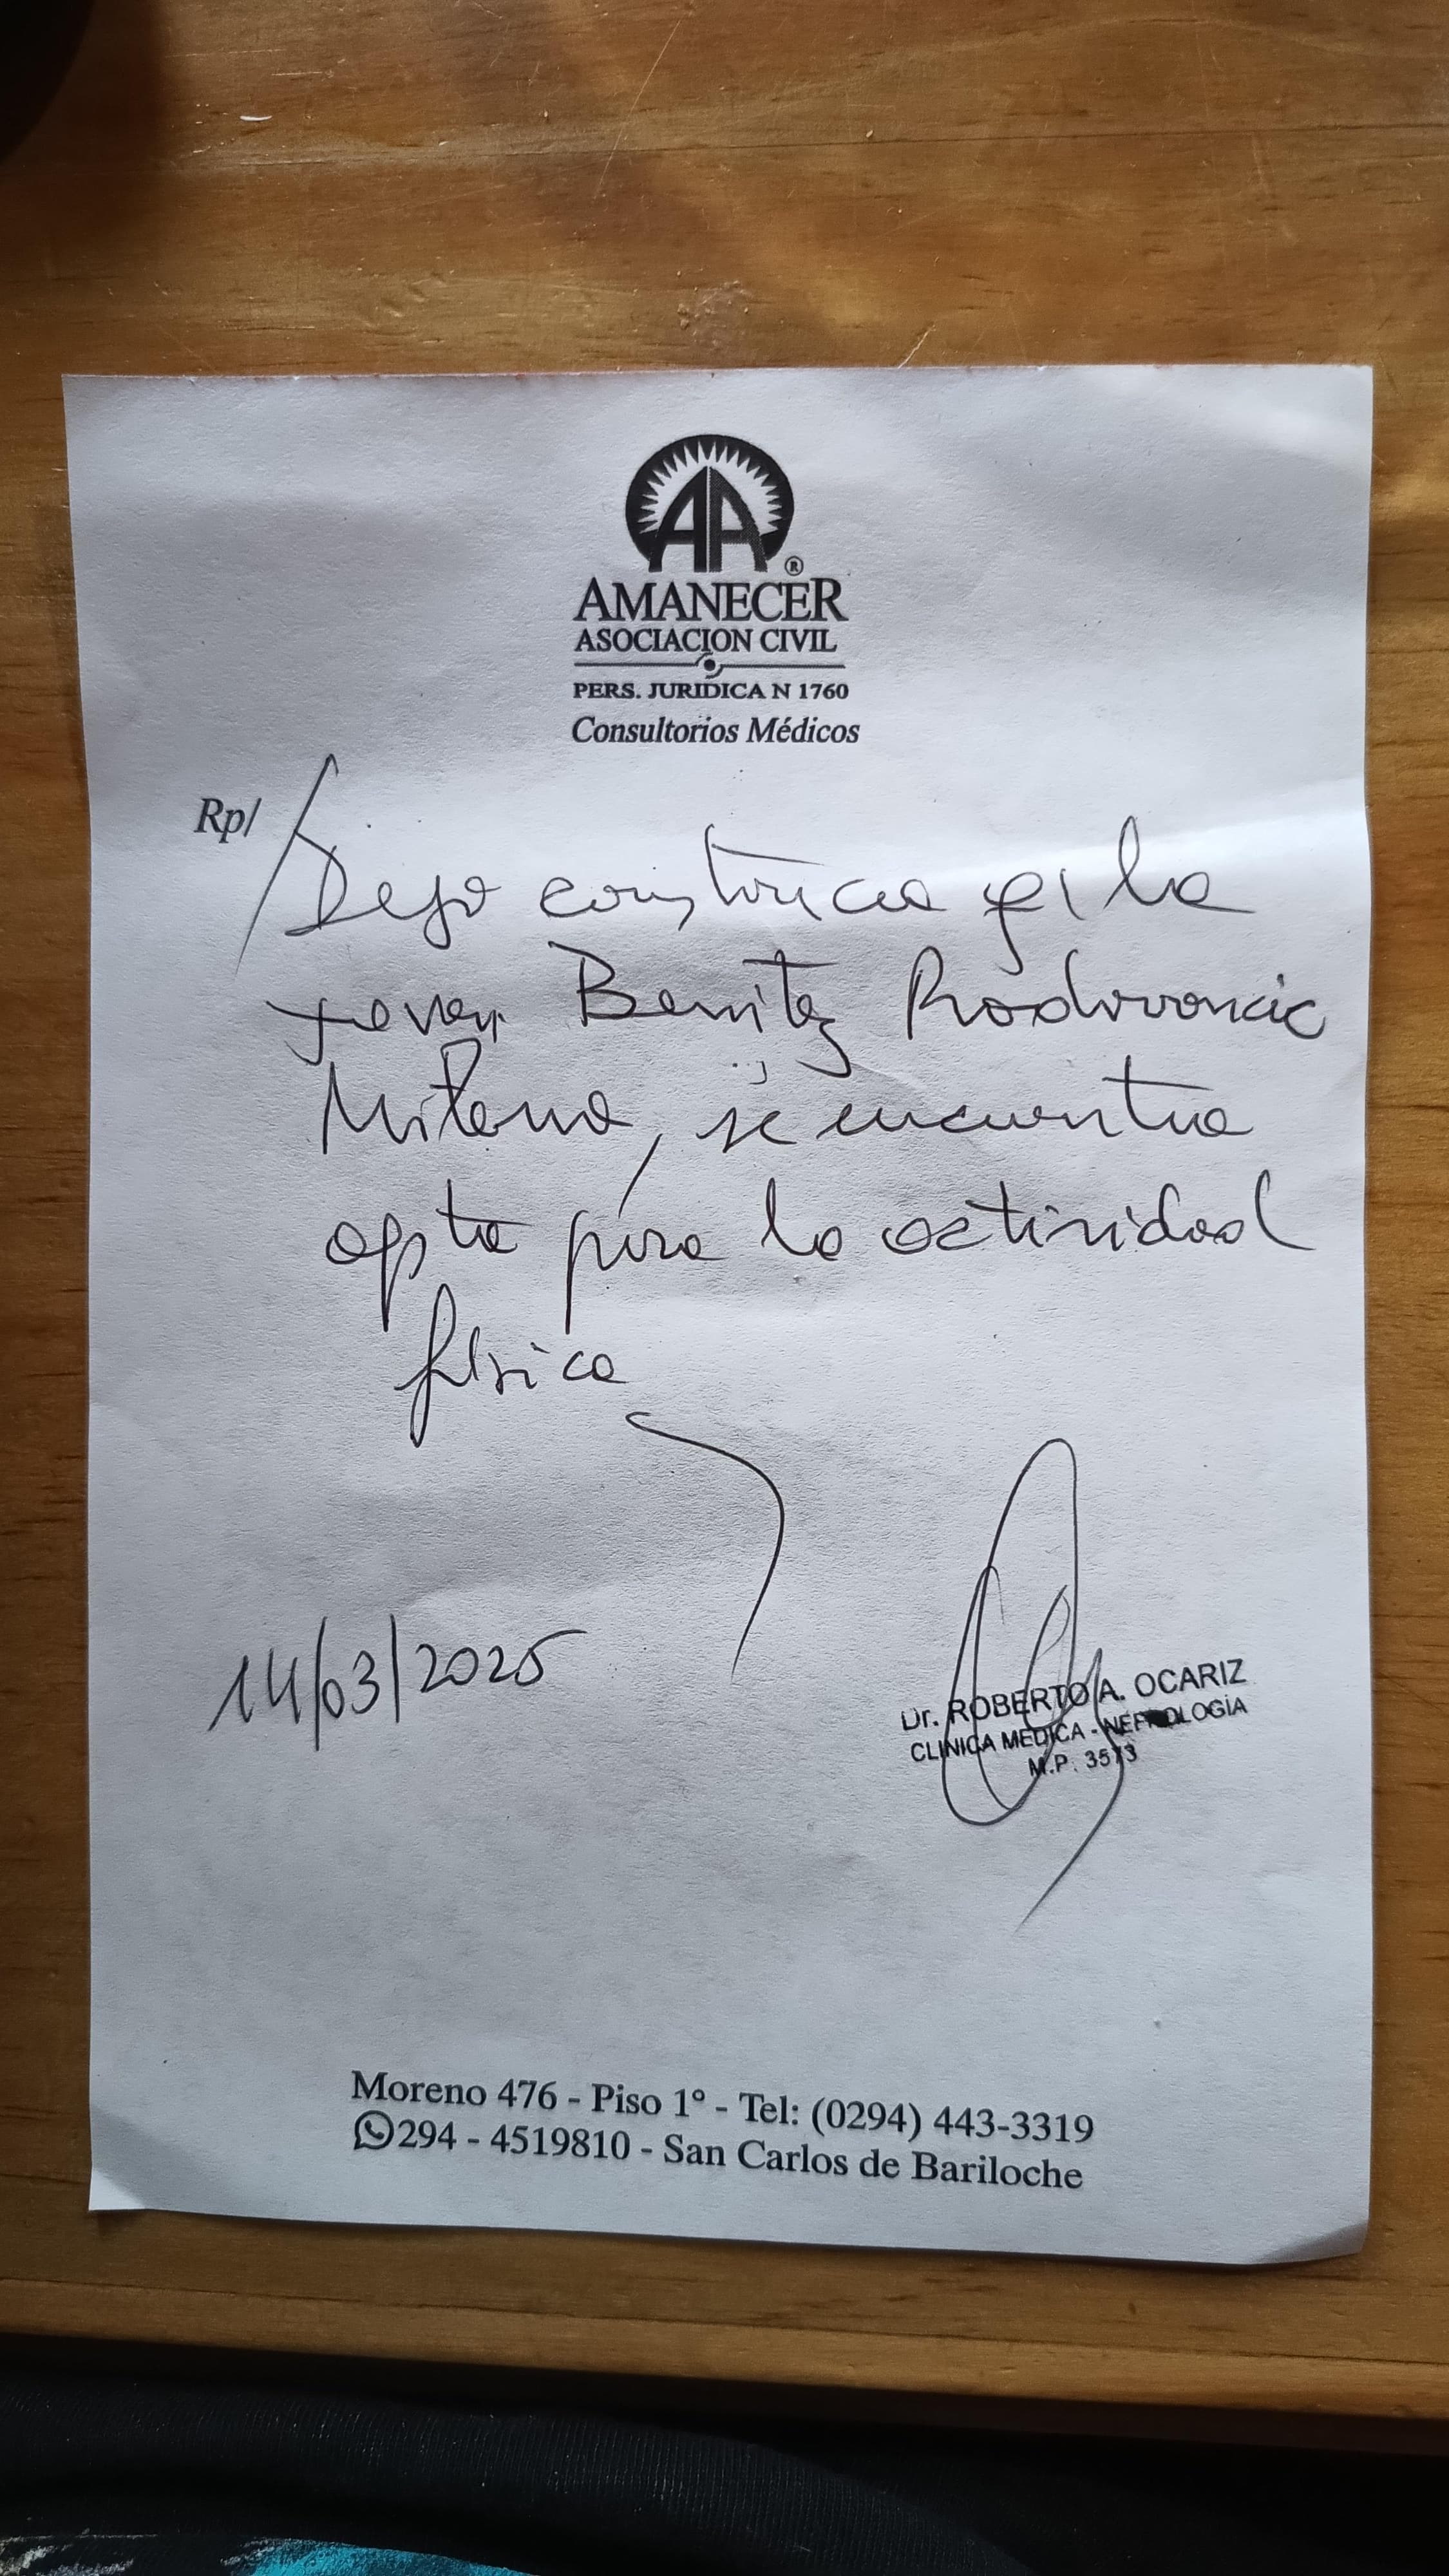 AA
®
AMANECER
ASOCIACION CIVIL
PERS. JURIDICA N 1760
Consultorios Médicos
Rp/
Dejo constancia q' la
joven Benitez
Milena, se encuentra
apta para la actividad
física
14/03/2025
Dr. ROBERTO A. OCARIZ
CLINICA MEDICA - NEFROLOGÍA
M.P. 3573
Moreno 476 - Piso 1° - Tel: (0294) 443-3319
294 - 4519810 - San Carlos de Bariloche